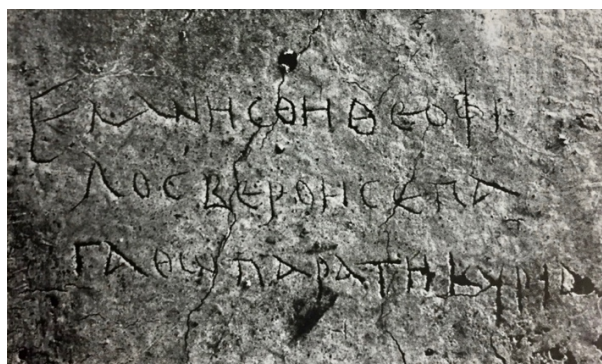 ΕΜΝΗϹΘΗΘΕΟΦΙ
ΛΟϹΒΕΡΟΗϹΕΠΑ
ΓΑΘωΠΑΡΑΤΗΚΥΡΙΑ